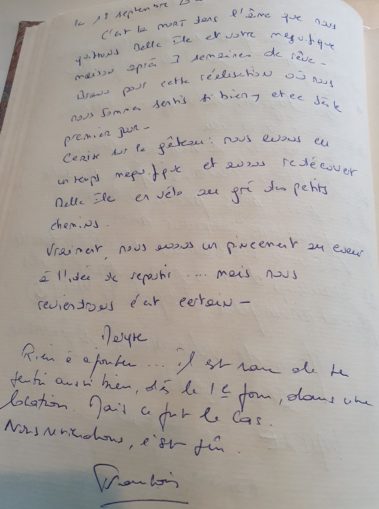 le 18 septembre
C'est la mort dans l'âme que nous
quittons Belle Ile et votre magnifique
maison après 3 semaines de rêve -
Bravo pour cette réalisation où nous
nous sommes sentis si bien, et ce dès le
premier jour -
Cerise sur le gâteau : nous avons eu
un temps magnifique et avons redécouvert
Belle Ile en vélo au gré des petits
chemins.
Vraiment, nous avons un pincement au coeur
à l'idée de repartir .... mais nous
reviendrons c'est certain -
Rien à ajouter ... il est rare de se
sentir aussi bien, dès le 1er jour, dans une
location. Mais ce fut le cas.
Nous reviendrons, c'est sûr.